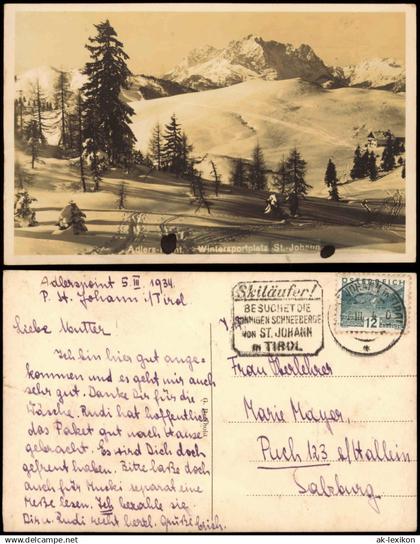 Adlers-Point. Wintersportplatz St. Johann
Adlerspoint 5. III. 1934.
P. St. Johann i/Tirol
Liebe Mutter!
Ich bin hier gut ange-
kommen und es geht mir auch
sehr gut. Danke Dir für die
Wäsche. Rudi hat hoffentlich
das Paket gut nach Hause
gebracht. Es wird Dich doch
gefreut haben. Bitte laße doch
auch für Mucki separat eine
Meße lesen. Ich bezahle sie
Dir u. Rudi recht herzl. Grüße
Skiläufer!
BESUCHET DIE
SONNIGEN SCHNEEBERGE
VON ST. JOHANN
IN TIROL
ÖSTERREICH
12
Frau Oberlehrer
Marie Mayer,
Puch 123 b/Hallein
Salzburg
ak-lexikon © www.ak-lexikon.de